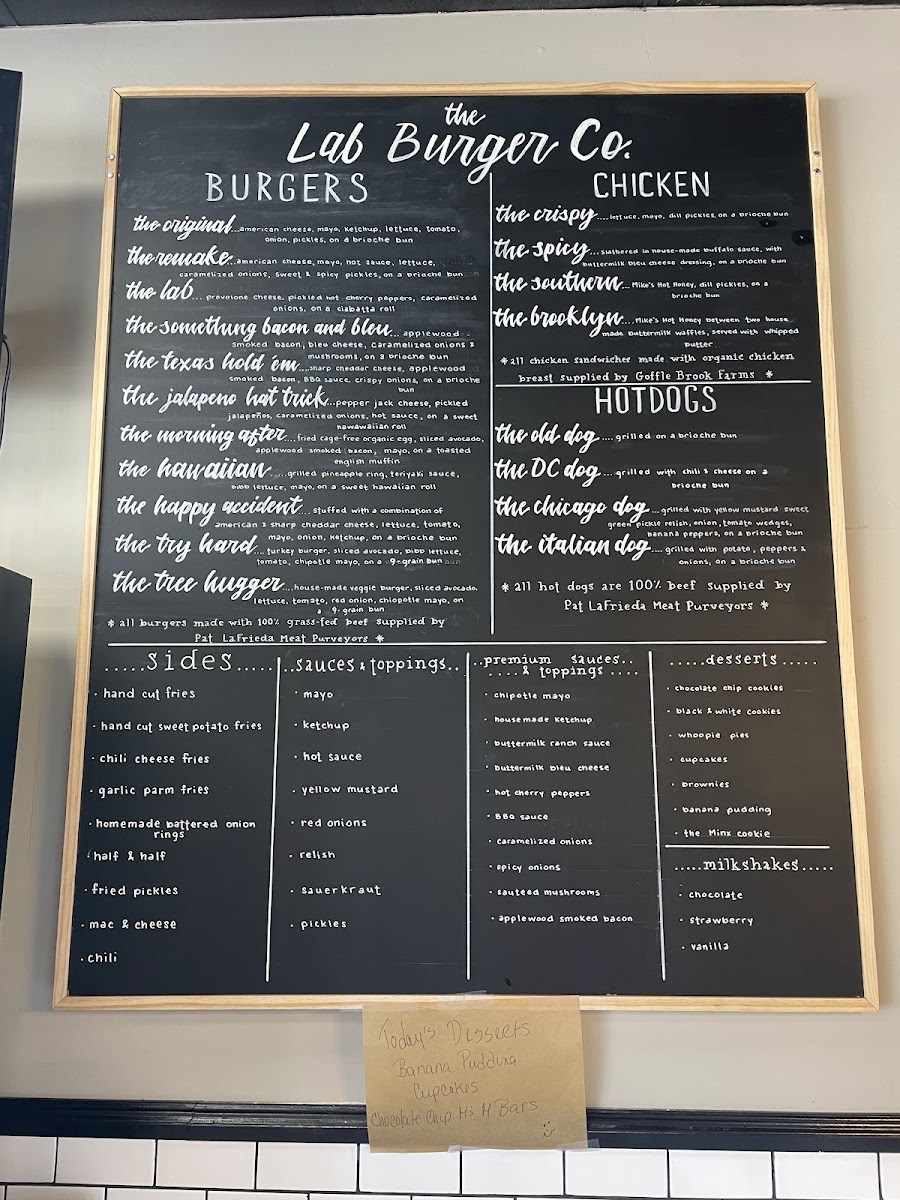 the
Lab Burger Co.
BURGERS
the original...american cheese, mayo, ketchup, lettuce, tomato,
onion, pickles, on a brioche bun
the remake...american cheese, mayo, hot sauce, lettuce,
caramelized onions, sweet & spicy pickles, on a brioche bun
the lab....provolone cheese, pickled hot cherry peppers, caramelized
onions, on a ciabatta roll
the something bacon and bleu...applewood
smoked bacon, bleu cheese, caramelized onions &
mushrooms, on a brioche bun
the texas hold 'em...sharp cheddar cheese, applewood
smoked bacon, BBQ sauce, crispy onions, on a brioche
bun
the jalapeno hat trick...pepper jack cheese, pickled
jalapeños, caramelized onions, hot sauce, on a sweet
hawawaiian roll
the morning after...fried cage-free organic egg, sliced avocado,
applewood smoked bacon, mayo, on a toasted
english muffin
the hawaiian.....grilled pineapple ring, teriyaki sauce,
bibb lettuce, mayo, on a sweet hawaiian roll
the happy accident...stuffed with a combination of
american & sharp cheddar cheese, lettuce, tomato,
mayo, onion, ketchup, on a brioche bun
the try hard....turkey burger, sliced avocado, bibb lettuce,
tomato, chipotle mayo, on a 9-grain bun
the tree hugger....house-made veggie burger, sliced avocado,
lettuce, tomato, red onion, chiopotle mayo, on
a 9-grain bun
* all burgers made with 100% grass-fed beef supplied by
Pat LaFrieda Meat Purveyors *
CHICKEN
the crispy....lettuce, mayo, dill pickles, on a brioche bun
the spicy....slathered in house-made buffalo sauce, with
buttermilk bleu cheese dressing, on a brioche bun
the southern...Mike's Hot Honey, dill pickles, on a
brioche bun
the brooklyn....Mike's Hot Honey between two house
made buttermilk waffles, served with whipped
butter
*all chicken sandwiches made with organic chicken
breast supplied by Goffle Brook Farms *
HOTDOGS
the old dog....grilled on a brioche bun
the DC dog....grilled with chili & cheese on a
brioche bun
the chicago dog....grilled with yellow mustard sweet
green pickle relish, onion, tomato wedges,
banana peppers, on a brioche bun
the italian dog....grilled with potato, peppers &
onions, on a brioche bun
* all hot dogs are 100% beef supplied by
Pat LaFrieda Meat Purveyors *
.....sides.....
· hand cut fries
· hand cut sweet potato fries
· chili cheese fries
· garlic parm fries
· homemade battered onion
rings
· half & half
· fried pickles
· mac & cheese
· chili
..sauces & toppings..
· mayo
· ketchup
· hot sauce
· yellow mustard
· red onions
· relish
· sauerkraut
· pickles
..premium sauces..
.....& toppings.....
· chipotle mayo
· housemade ketchup
· buttermilk ranch sauce
· buttermilk bleu cheese
· hot cherry peppers
· BBQ sauce
· caramelized onions
· spicy onions
· sauteed mushrooms
· applewood smoked bacon
.....desserts.....
· chocolate chip cookies
· black & white cookies
· whoopie pies
· cupcakes
· brownies
· banana pudding
· the Minx cookie
.....milkshakes.....
· chocolate
· strawberry
· vanilla
Today's Desserts
Banana Pudding
Cupcakes
Chocolate Chip M&M Bars